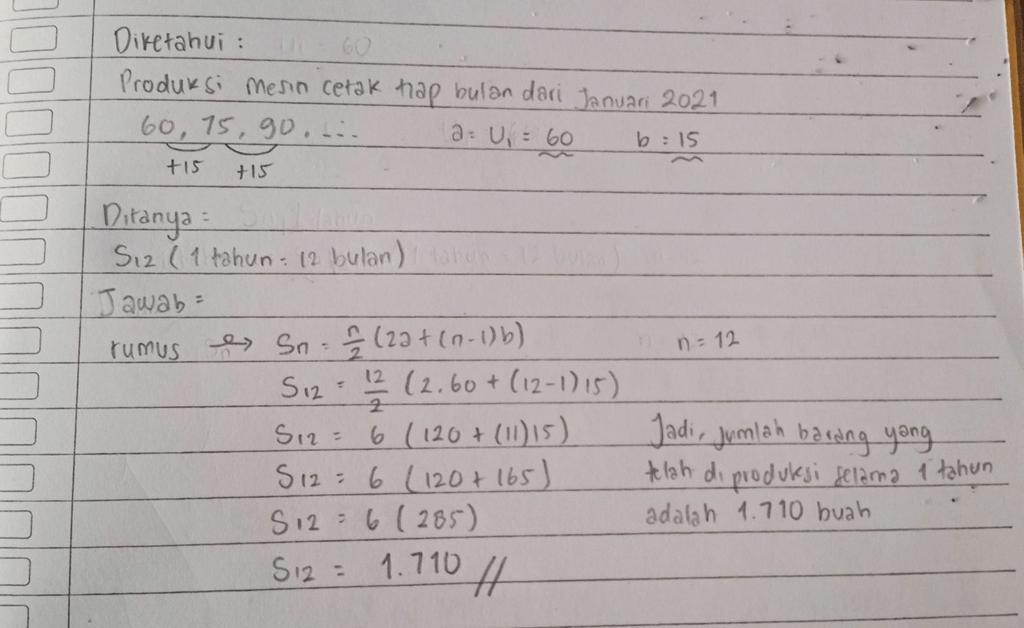 Diketahui :
Produksi mesin cetak tiap bulan dari Januari 2021
60, 75, 90, .... a = U₁ = 60 b = 15
+15 +15
Ditanya =
S12 (1 tahun = 12 bulan)
Jawab =
rumus → Sn = n/2 (2a + (n-1)b) n = 12
S12 = 12/2 (2.60 + (12-1)15)
S12 = 6 (120 + (11)15) Jadi, jumlah barang yang
S12 = 6 (120 + 165) telah di produksi selama 1 tahun
S12 = 6 (285) adalah 1.710 buah
S12 = 1.710 //